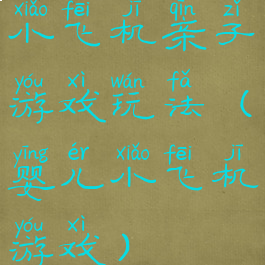 xiǎo fēi jī qīn zǐ
小飞机亲子
yóu xì wán fǎ
游戏玩法（
yīng ér xiǎo fēi jī
婴儿小飞机
yóu xì
游戏）